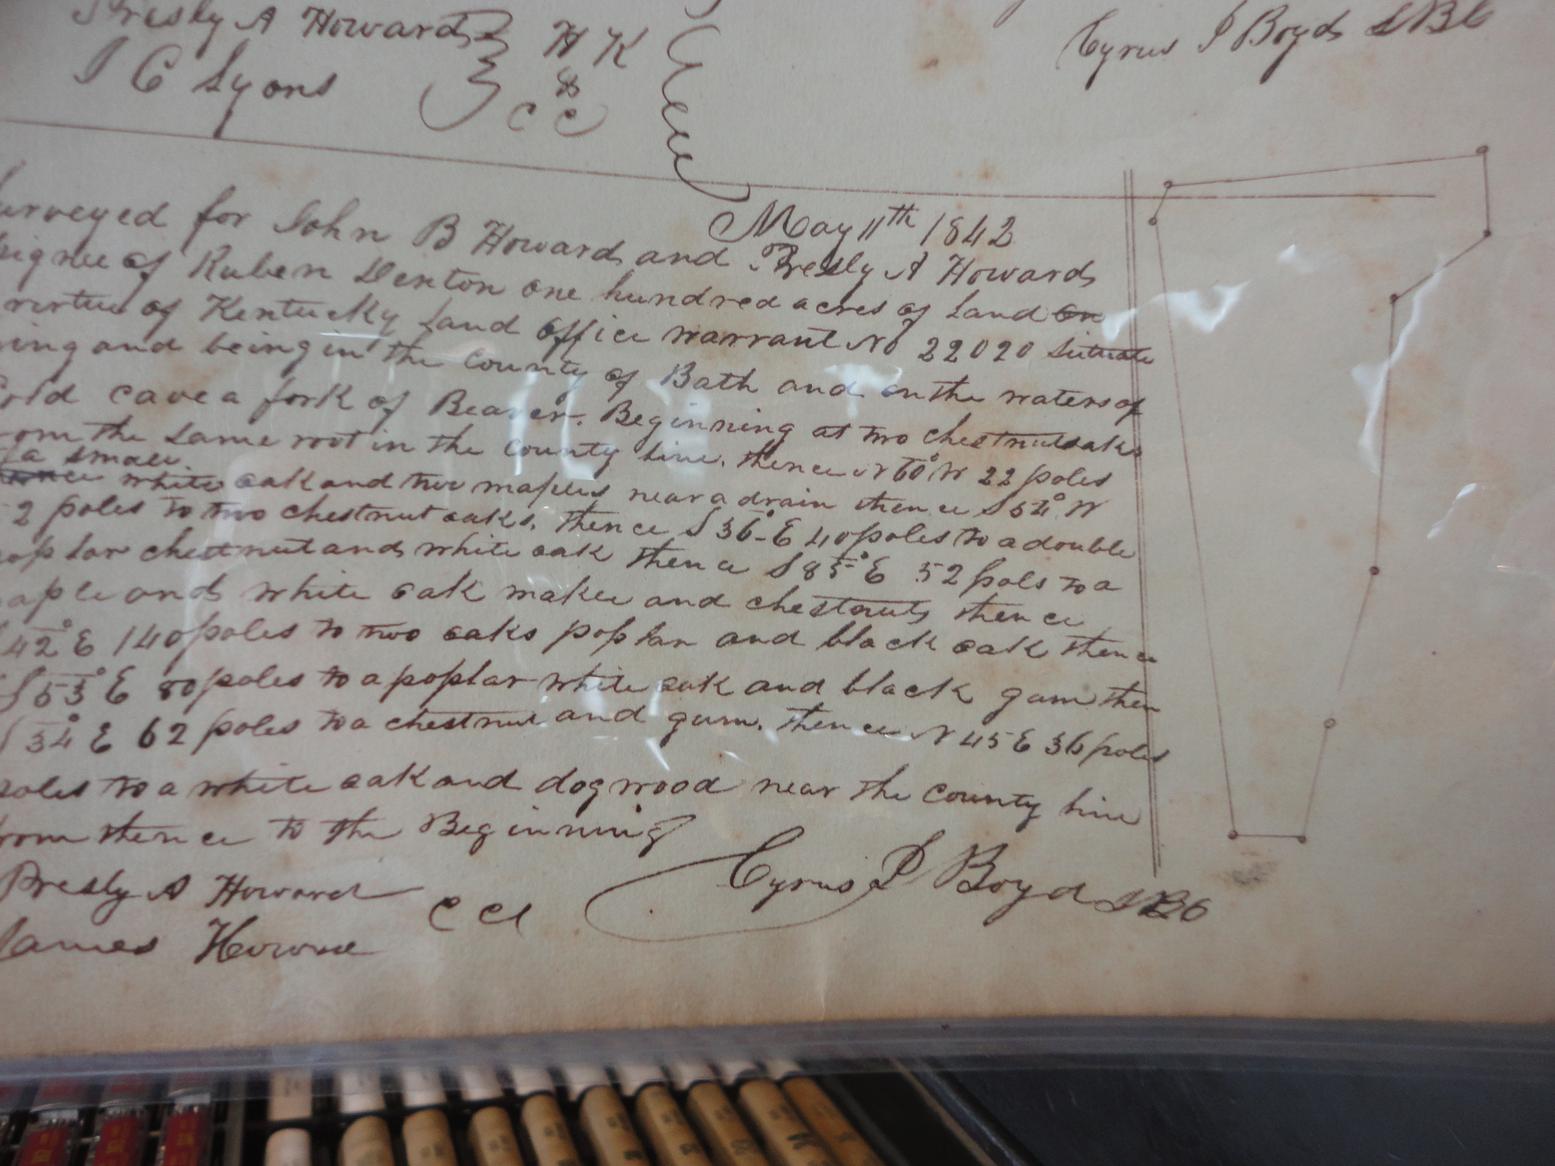 Presly A Howard H K
I C Lyons & C C
Cyrus P Boyd SBC
May 11th 1842
urveyed for John B Howard and Presly A Howard
signee of Ruben Denton one hundred acres of land on
virtue of Kentucky Land office warrant No 22020 Situate
ing and being in the county of Bath and on the waters of
Cold cave a fork of Beaver. Beginning at two chestnut oaks
rom the Same root in the county line. thence N 60° W 22 poles
a small
white oak and two maples near a drain thence S 54° W
2 poles to two chestnut oaks. thence S 36° E 40 poles to a double
oplar chestnut and white oak thence S 85° E 52 pols to a
aple and white oak makee and chestnuts thence
42° E 140 poles to two oaks poplar and black oak thence
S 53° E 80 poles to a poplar white oak and black gum then
S 34° E 62 poles to a chestnut and gum. thence N 45 E 36 poles
poles to a white oak and dogwood near the county line
from thence to the Beginning
Cyrus P Boyd SBC
Presly A Howard C C
James